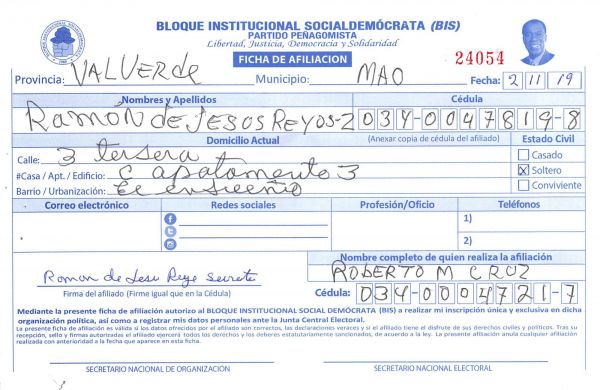 BLOQUE INSTITUCIONAL SOCIALDEMÓCRATA (BIS)
PARTIDO PEÑAGOMISTA
Libertad, Justicia, Democracia y Solidaridad
FICHA DE AFILIACION
24054
Provincia: VALVERde Municipio: MAO Fecha: 2/11/19
Nombres y Apellidos Cédula
Ramón de JESOS REYOS-2 034-0047819-8
Domicilio Actual (Anexar copia de cédula del afiliado) Estado Civil
Calle: 3 tersera Casado
#Casa / Apt. / Edificio: C apatamento 3 X Soltero
Barrio / Urbanización: El ensueño Conviviente
Correo electrónico Redes sociales Profesión/Oficio Teléfonos
1)
2)
Nombre completo de quien realiza la afiliación
Ramon de Jesu Reye ROBERTO M CRUZ
Firma del afiliado (Firme igual que en la Cédula) Cédula: 034-0004721-7
Mediante la presente ficha de afiliación autorizo al BLOQUE INSTITUCIONAL SOCIAL DEMÓCRATA (BIS) a realizar mi inscripción única y exclusiva en dicha
organización política, así como a registrar mis datos personales ante la Junta Central Electoral.
La presente ficha de afiliación es válida si los datos ofrecidos por el afiliado son correctos, las declaraciones veraces y si el afiliado tiene el disfrute de sus derechos civiles y políticos. Tras su
recepción, sello y firmas autorizadas el afiliado ejercerá todos los derechos y los deberes estatutariamente sancionados, de acuerdo a la ley. La presente afiliación anula cualquier afiliación
realizada con anterioridad a la fecha que aparece en esta ficha.
SECRETARIO NACIONAL DE ORGANIZACIÓN SECRETARIO NACIONAL ELECTORAL